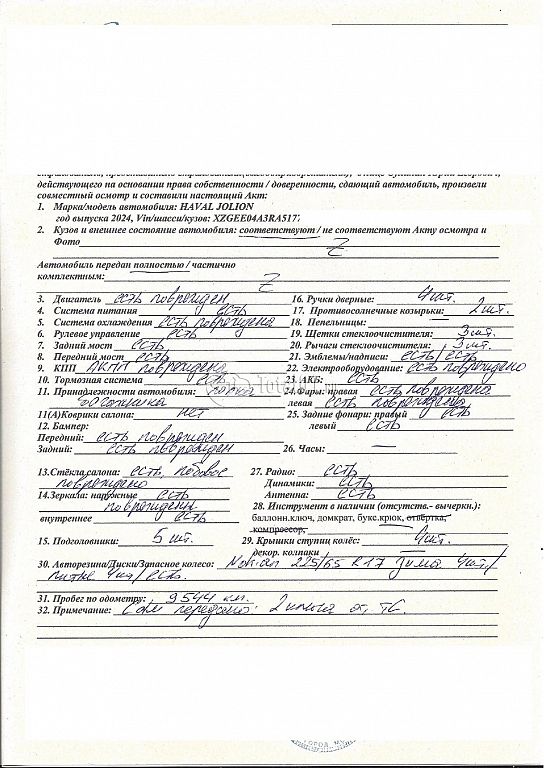 действующего на основании права собственности / доверенности, сдающий автомобиль, произвели
совместный осмотр и составили настоящий Акт:
1. Марка/модель автомобиля: HAVAL JOLION
год выпуска 2024, Vin/шасси/кузов: XZGEE04A3RA517
2. Кузов и внешнее состояние автомобиля: соответствуют / не соответствуют Акту осмотра и
Фото Z
Автомобиль передан полностью / частично
комплектным: Z
3. Двигатель есть поврежден 16. Ручки дверные: 4шт.
4. Система питания есть 17. Противосолнечные козырьки: 2шт.
5. Система охлаждения есть повреждена 18. Пепельницы:
6. Рулевое управления есть 19. Щетки стеклоочистителя: 3шт.
7. Задний мост есть 20. Рычаги стеклоочистителя: 3шт.
8. Передний мост есть 21. Эмблемы/надписи: есть/есть
9. КПП АКПП повреждена 22. Электрооборудование: есть повреждено
10. Тормозная система есть 23. АКБ: есть
11. Принадлежности автомобиля: 24.Фары: правая есть повреждена
левая есть повреждена
11(А)Коврики салона: нет 25. Задние фонари: правый есть
12. Бампер: левый есть
Передний: есть поврежден
Задний: есть поврежден 26. Часы:
13.Стёкла салона: есть, лобовое 27. Радио: есть
повреждено Динамики: есть
14.Зеркала: наружные есть Антенна: есть
повреждены 28. Инструмент в наличии (отсутств.- вычеркн.):
внутреннее есть баллонн.ключ, домкрат, букс.крюк, отвёртка,
компрессор,
15. Подголовники: 5 шт. 29. Крышки ступиц колёс: 4шт.
декор. колпаки
30. Авторезина/Диски/Запасное колесо: Nokian 225/65 R17 зима 4шт/
литые 4шт/есть.
31. Пробег по одометру: 9544 км.
32. Примечание: Сам передано: 2 ключа от ТС.